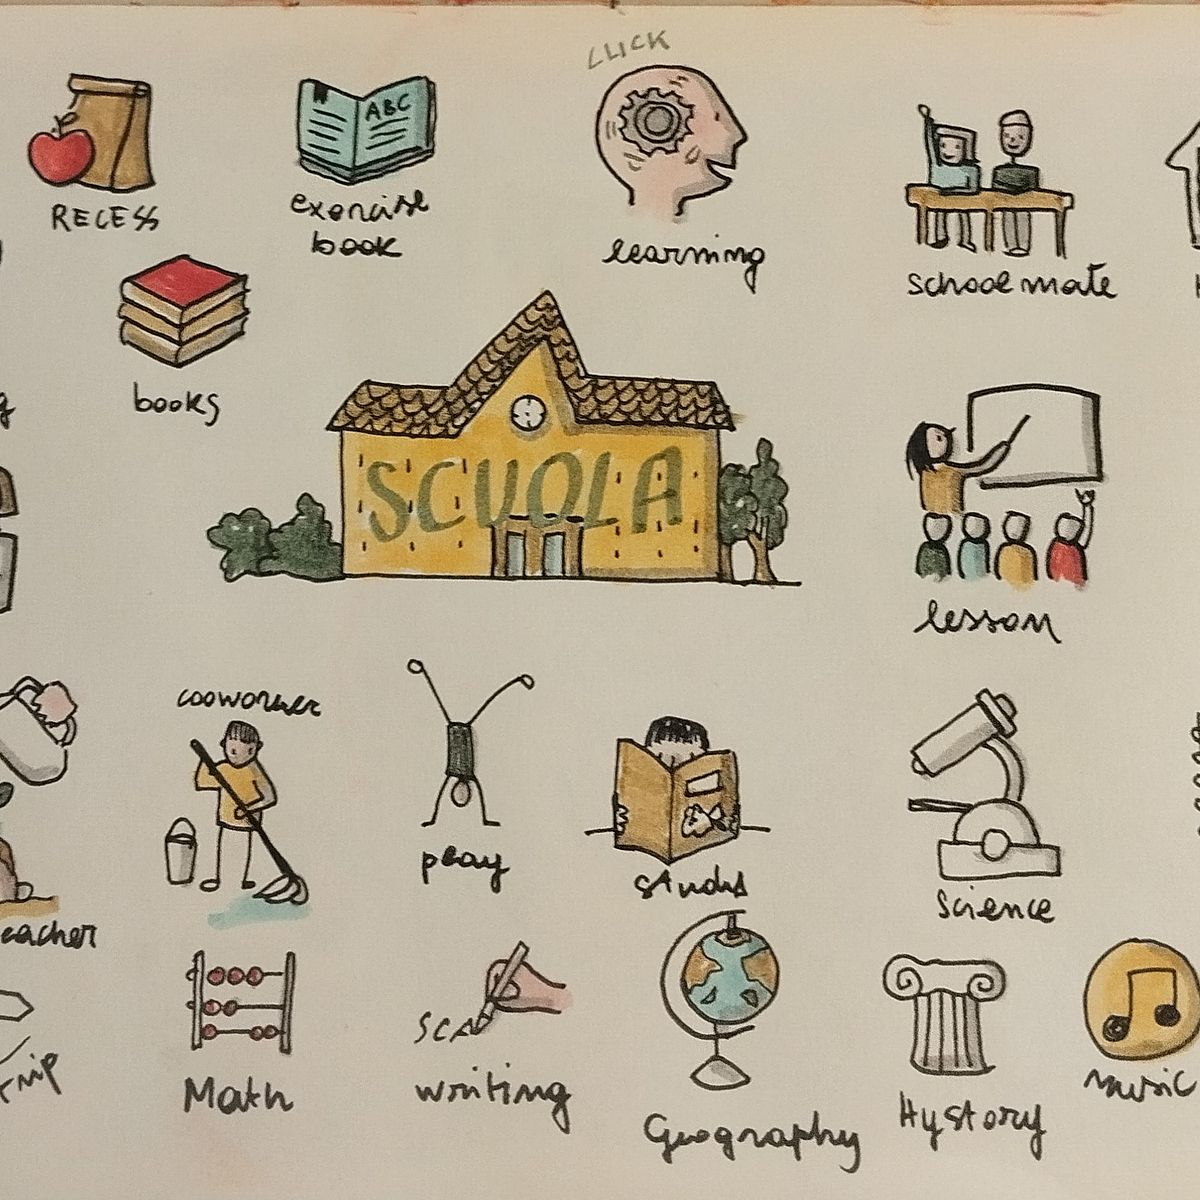 CLICK
ABC
RECESS
exercise
book
learning
schoolmate
books
SCUOLA
lesson
cooworker
play
study
science
eacher
Math
writing
Geography
Hystory
music
trip